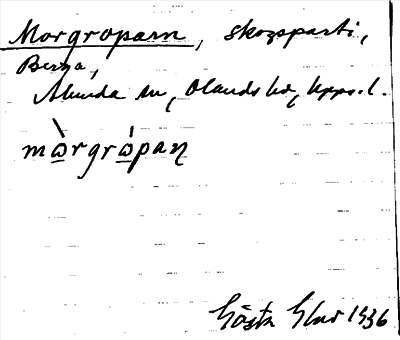 Morgroparn, skogsparti,
Berga,
Alunda sn, Olands hd, Upps. l.
mòrgrópaɳ
Gösta
1936